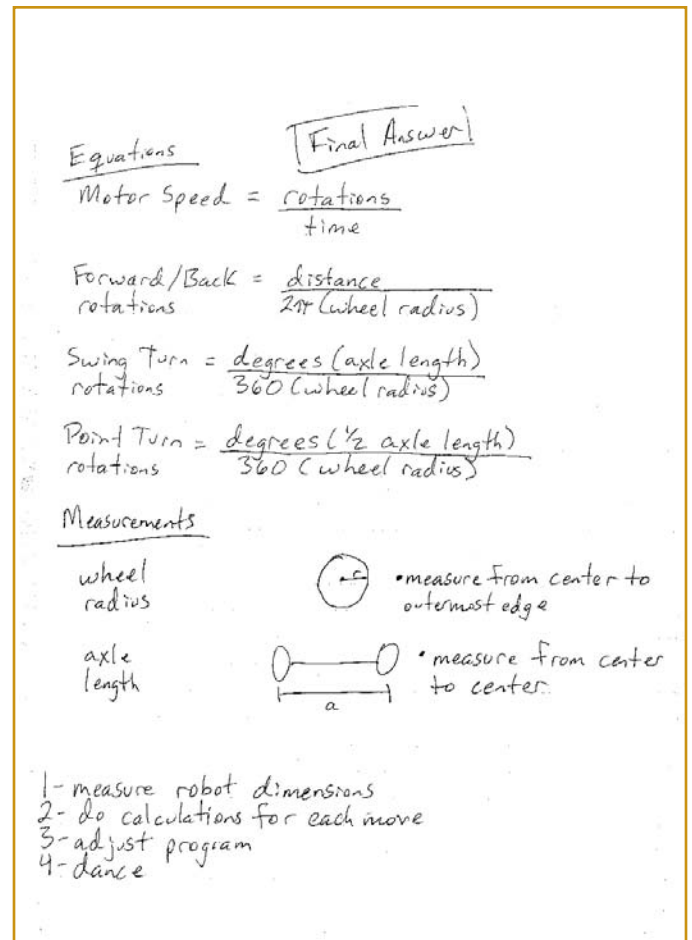 Final Answer
Equations
Motor Speed = rotations
time
Forward/Back = distance
rotations 2π (wheel radius)
Swing Turn = degrees (axle length)
rotations 360 (wheel radius)
Point Turn = degrees (1/2 axle length)
rotations 360 (wheel radius)
Measurements
wheel
radius
r
•measure from center to
outermost edge
axle
length
a
•measure from center
to center
1- measure robot dimensions
2- do calculations for each move
3- adjust program
4- dance